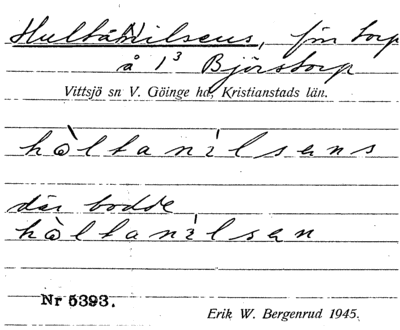 Hultanilsens, fm torp
å 1³ Björstorp
Vittsjö sn V. Göinge hd, Kristianstads län.
hòltanìlsens
där bodde
hòltanìlsen
Nr 5393.
Erik W. Bergenrud 1945.